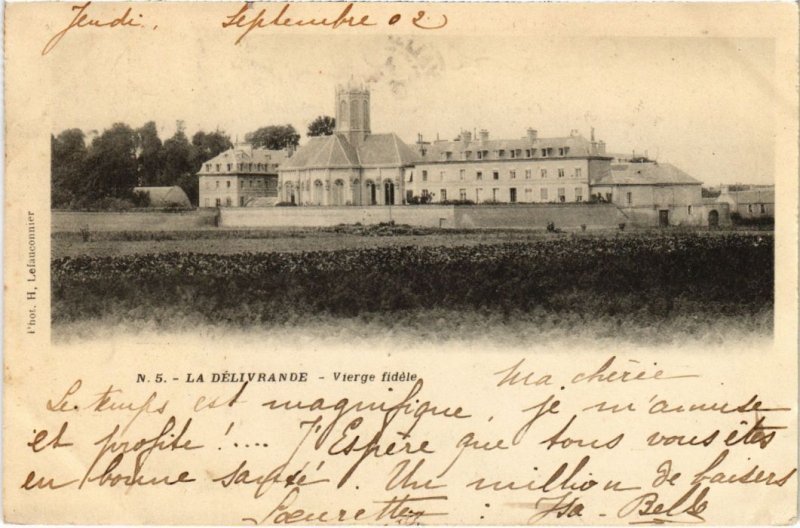 Jeudi, Septembre 02
Phot. H. Lefauconnier
N. 5. - LA DÉLIVRANDE - Vierge fidèle
Ma chérie
Le temps est magnifique, je m'amuse
et profite !.... J'Espère que tous vous êtes
en bonne santé. Un million de baisers
Soeurette : Isa-Belle